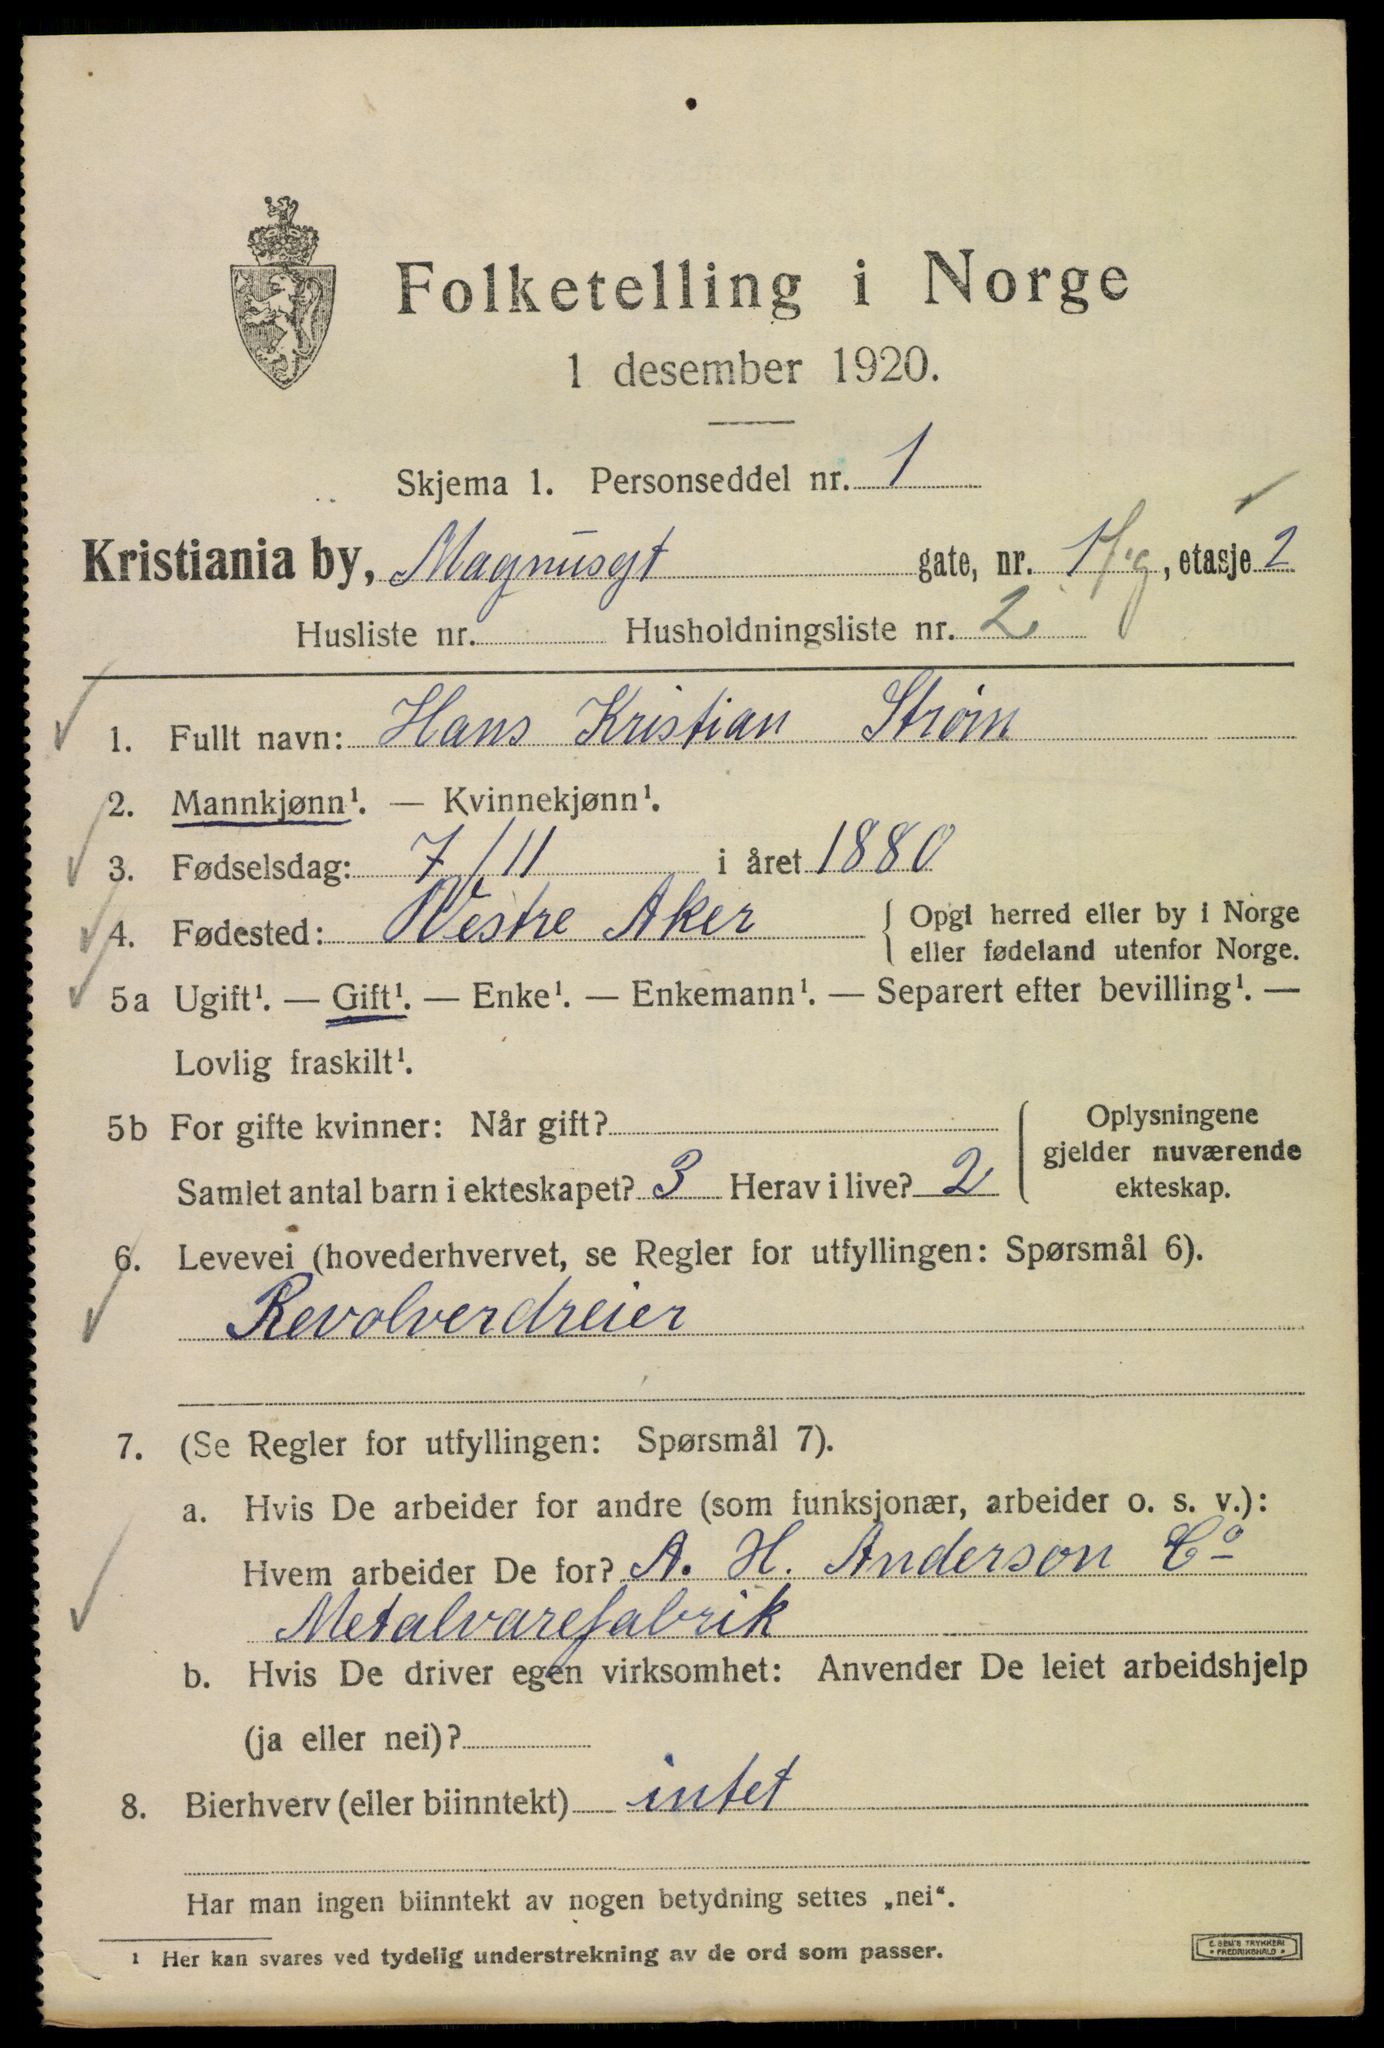 Folketelling i Norge
1 desember 1920.
Skjema 1. Personseddel nr. 1
Kristiania by, Magnusgt gate, nr. 1, etasje 2
Husliste nr. Husholdningsliste nr. 2
1. Fullt navn: Hans Kristian Strøm
2. Mannkjønn¹. — Kvinnekjønn¹.
3. Fødselsdag: 7/11 i året 1880
4. Fødested: Vestre Aker { Opgi herred eller by i Norge
eller fødeland utenfor Norge.
5a Ugift¹. — Gift¹. — Enke¹. — Enkemann¹. — Separert efter bevilling¹. —
Lovlig fraskilt¹.
5b For gifte kvinner: Når gift?
Samlet antal barn i ekteskapet? 3 Herav i live? 2
Oplysningene
gjelder nuværende
ekteskap.
6. Levevei (hovederhvervet, se Regler for utfyllingen: Spørsmål 6).
Revolverdreier
7. (Se Regler for utfyllingen: Spørsmål 7).
a. Hvis De arbeider for andre (som funksjonær, arbeider o. s. v.):
Hvem arbeider De for? A. H. Anderson Co
Metalvarefabrik
b. Hvis De driver egen virksomhet: Anvender De leiet arbeidshjelp
(ja eller nei)?
8. Bierhverv (eller biinntekt) intet
Har man ingen biinntekt av nogen betydning settes „nei“.
¹ Her kan svares ved tydelig understrekning av de ord som passer.
E. SEM'S TRYKKERI
• FREDRIKSHALD •